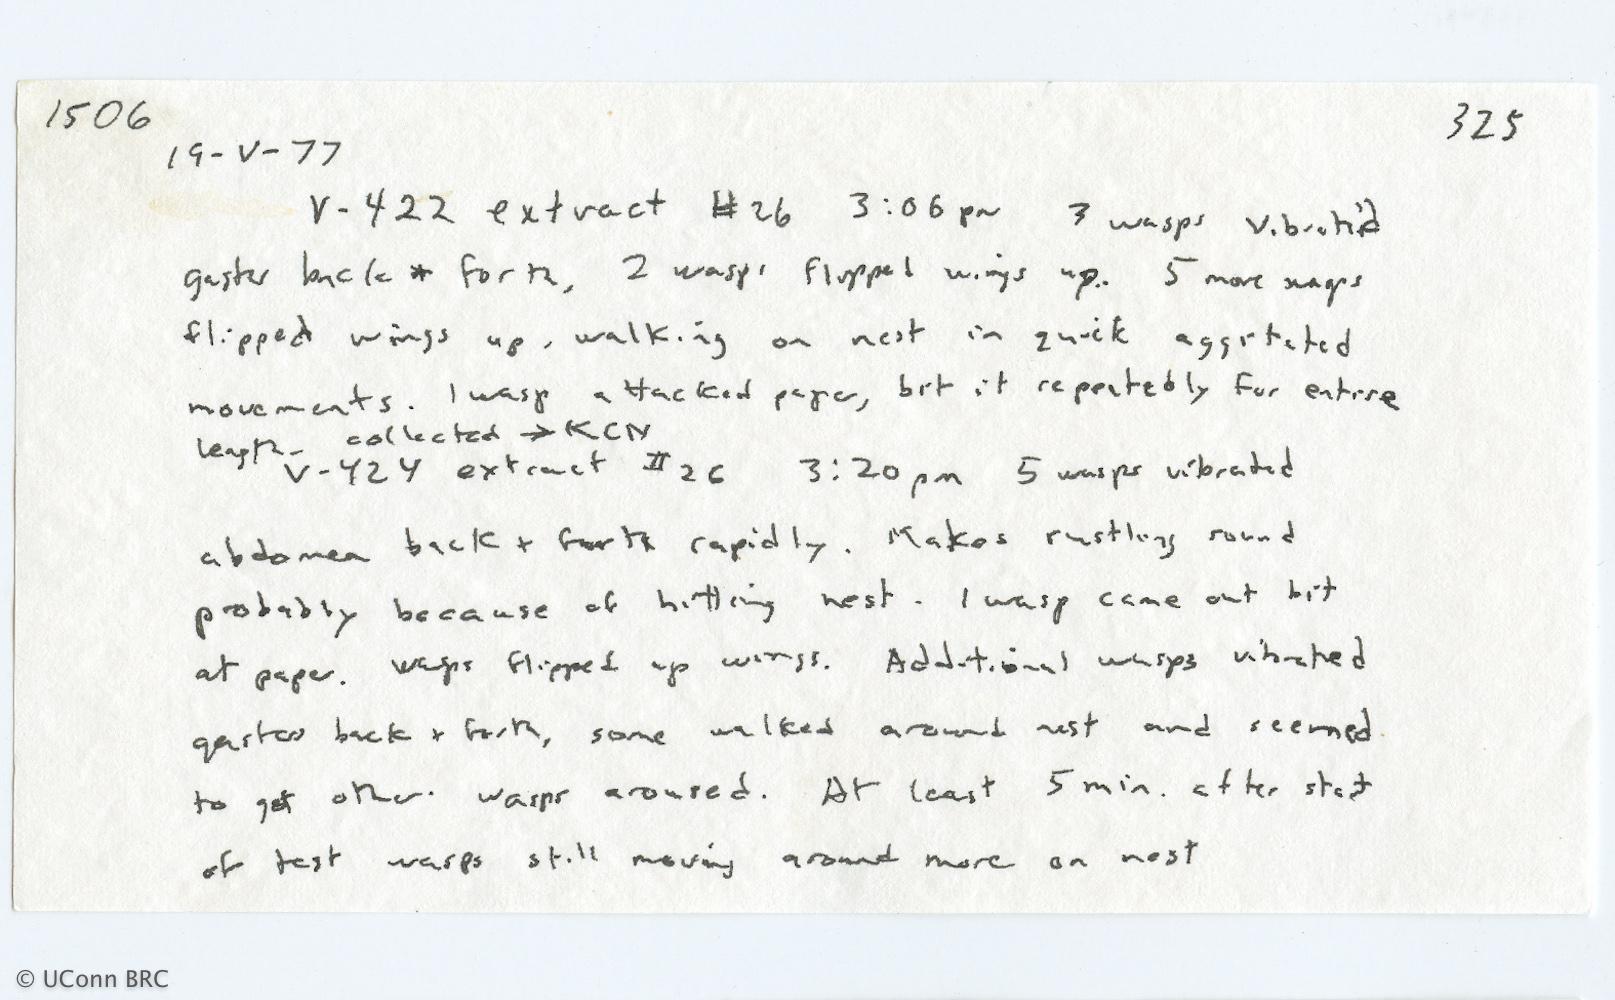 1506
325
19-V-77
V-422 extract #26 3:06 pm 3 wasps vibrat'd
gaster back + forth, 2 wasps flipped wings up. 5 more wasps
flipped wings up, walking on nest in quick aggitated
movements. 1 wasp attacked paper, bit it repeatedly for entire
length. collected → KCN
V-424 extract #26 3:20 pm 5 wasps vibrated
abdomen back + forth rapidly. Makes rustling sound
probably because of hitting nest. 1 wasp came out bit
at paper. Wasps flipped up wings. Additional wasps vibrated
gasters back + forth, some walked around nest and seemed
to get other wasps aroused. At least 5 min. after start
of test wasps still moving around more on nest
© UConn BRC